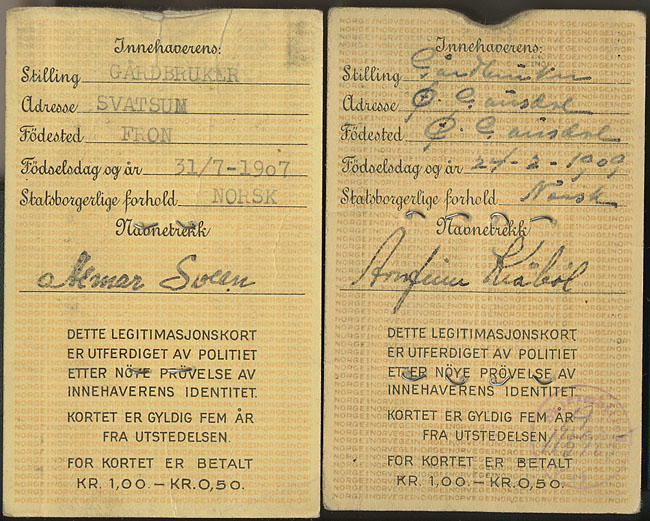 Innehaverens:
Stilling GÅRDBRUKER
Adresse SVATSUM
Födested FRON
Födselsdag og år 31/7-1907
Statsborgerlige forhold NORSK
Navnetrekk
DETTE LEGITIMASJONSKORT
ER UTFERDIGET AV POLITIET
ETTER NÖYE PRÖVELSE AV
INNEHAVERENS IDENTITET.
KORTET ER GYLDIG FEM ÅR
FRA UTSTEDELSEN.
FOR KORTET ER BETALT
KR. 1,00.–KR.0,50.
Innehaverens:
Stilling Gårdbruker
Adresse Ø. Gausdal
Födested Ø. Gausdal
Födselsdag og år 24-2-1909
Statsborgerlige forhold Norsk
Navnetrekk
DETTE LEGITIMASJONSKORT
ER UTFERDIGET AV POLITIET
ETTER NÖYE PRÖVELSE AV
INNEHAVERENS IDENTITET
KORTET ER GYLDIG FEM ÅR
FRA UTSTEDELSEN.
FOR KORTET ER BETALT
KR. 1,00.–KR.0,50.